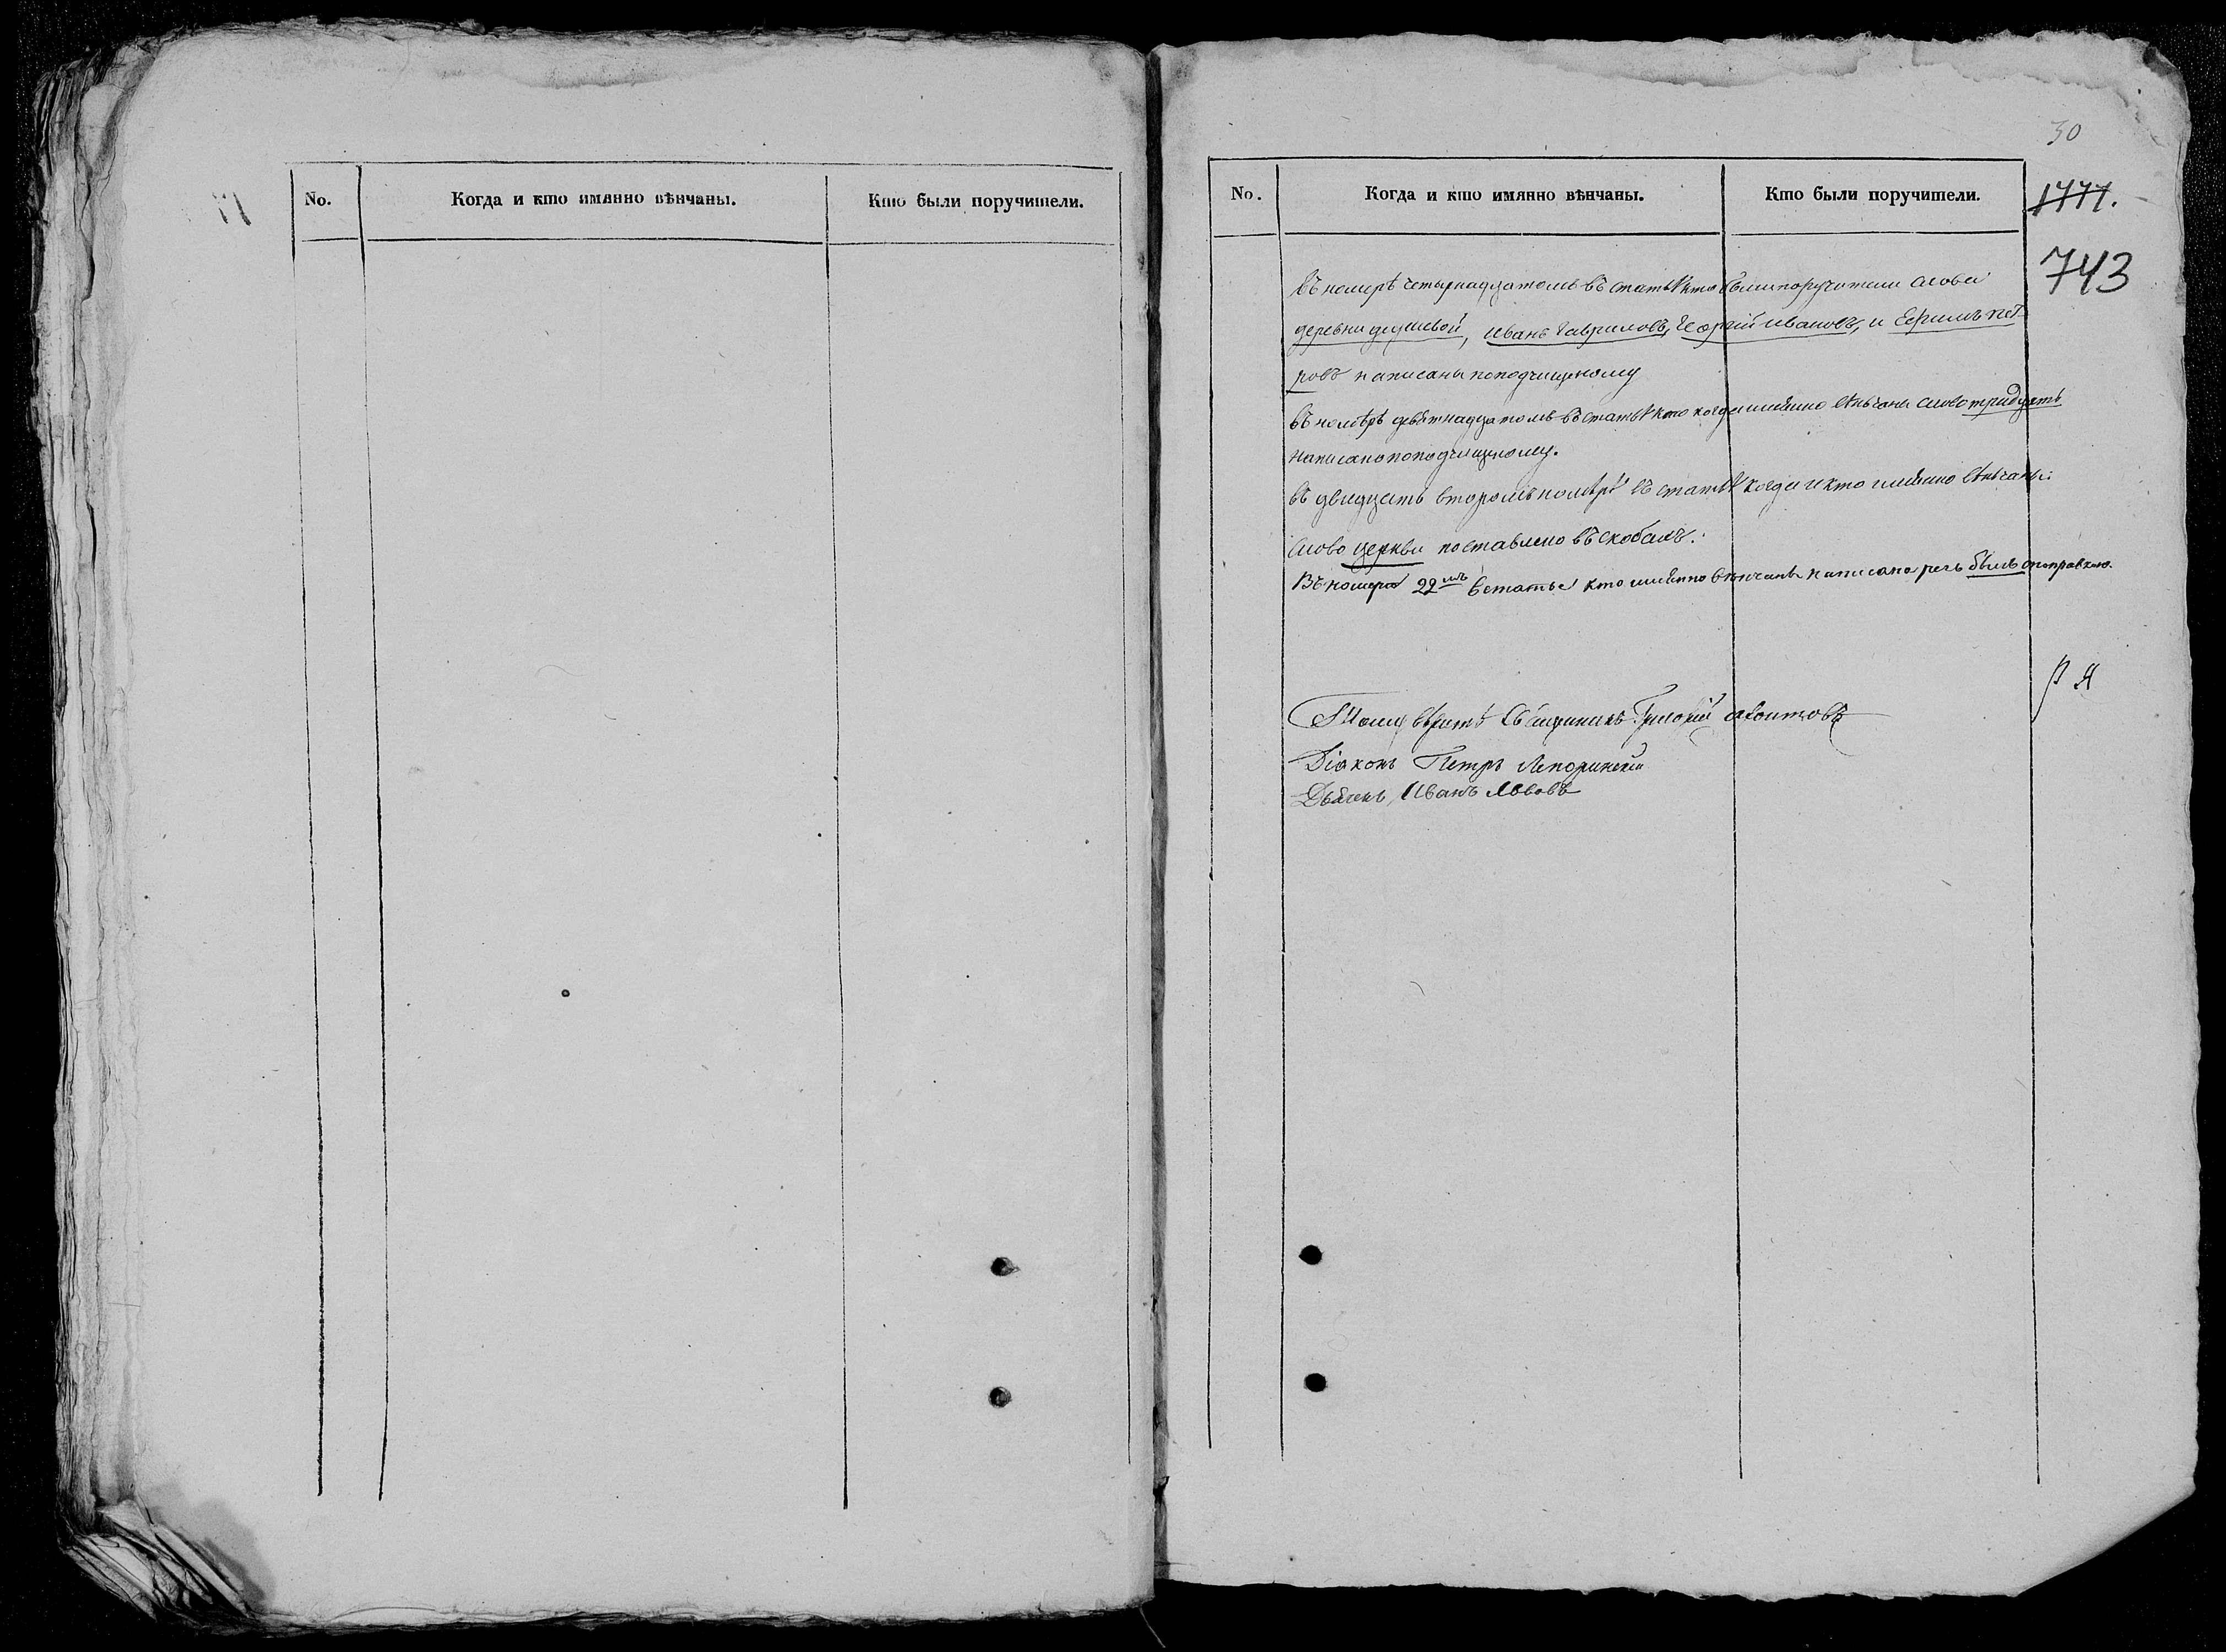 No.
Когда и кто имянно вѣнчаны.
Кто были поручители.
30
No.
Когда и кто имянно вѣнчаны.
Кто были поручители.
1771.
743
въ номерѣ четырнадцатомъ въ статьѣ кто были поручители слова
деревни, Иванъ Гавриловъ, Георгій Ивановъ, и Ефимъ Пет-
ровъ написаны по подчищеному
въ номѣрѣ девятнадцатомъ въ статьѣ кто когда имянно вѣнчаны слово тридцать
написано по подчищеному.
въ двадцать второмъ номѣрѣ въ статьѣ когда и кто имянно вѣнчаны:
слово церкви поставлено въ скобахъ.
Въ номерѣ 22мъ в статье кто имянно вѣнчанъ написана речь былъ с поправкою.
Священникъ Григорій
Діаконъ Петръ Лепоринскій
Дьячекъ Иванъ Львовъ